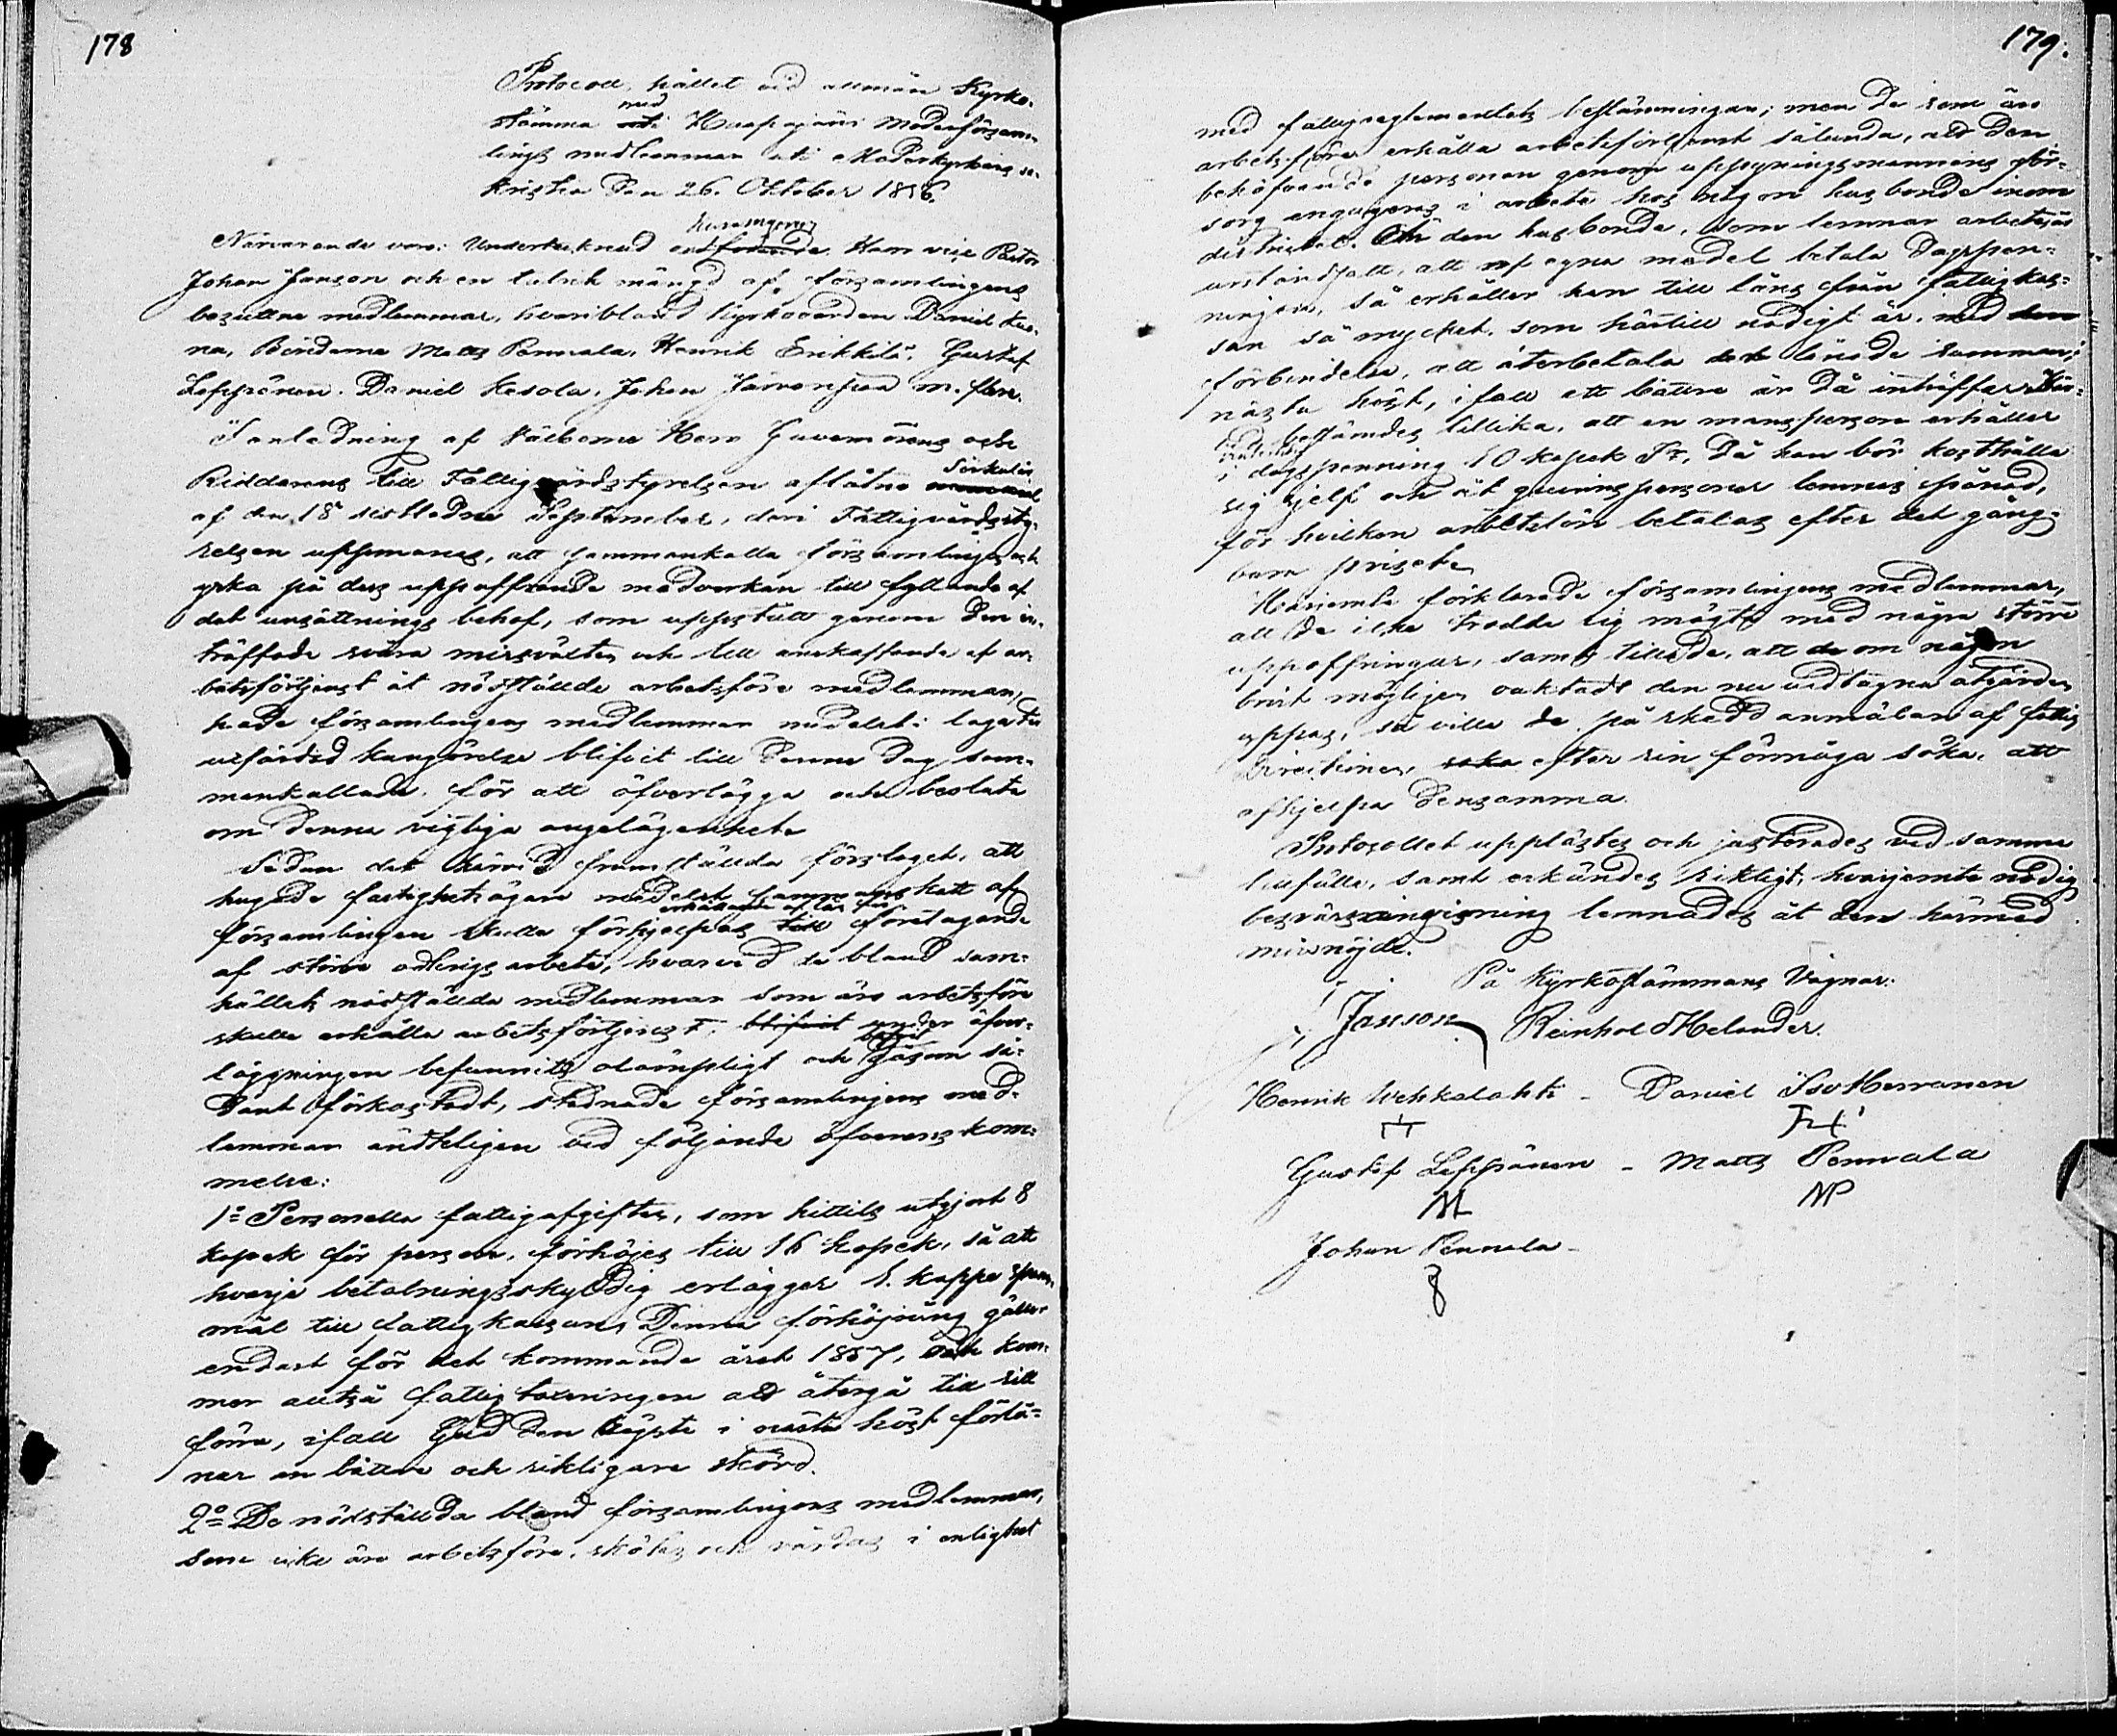 178
Protocoll, hållet vid allmän Kyrko-
stämma med Haapajärvi Moderförsam-
lings medlemmar uti Moderkyrkans sa-
kristia den 26. Oktober 1856.
Närvarande voro: Undertecknad Herr vice Pastor
Johan Janson och en talrik mängd af församlingens
besuttne medlemmar, hvaribland Kyrkovärden Daniel
Bönderna Matts Pennala, Henrik Erikkilä, Gustaf
Leppänen, Daniel Kesola, Johan Järvenpää m. fl.
I anledning af Välborne Herr Guvernörens och
Riddarens till Fattigvårdsstyrelsen aflåtne Sirkulär
af den 18 sistledne September, deri Fattigvårdssty-
relsen uppmanas, att sammankalla församlingen och
yrka på dess uppoffrande medverkan till fyllande af
det unsättnings behof, som uppstått genom den in-
träffade svåra missväxten och till anskaffande af ar-
betsförtjenst åt nödställde arbetsföre medlemmar,
hade församlingens medlemmar medelst i laga tid
utfärdad kungörelse blifvit till denna dag sam-
mankallade, för att öfverlägga och besluta
om denna vigtiga angelägenhet.
Sedan det härvid framställda förslaget, att
hugade fastighetsägare medelst sammanskott af
församlingen skulle förhjelpas till företagande
af större odlingsarbete, hvarvid de bland sam-
hällets nödställda medlemmar som äro arbetsföre
skulle erhålla arbetsförtjenst, blifvit under öfver-
läggningen befunnits olämpligt och såsom så-
dant förkastadt, stadnade församlingens med-
lemmar ändteligen vid följande öfverenskom-
melse:
1:o Personella fattigafgiften, som hittills utgjort 8
kopek för person, förhöjes till 16 kopek, så att
hvarje betalningsskyldig erlägger 1. kappe span-
mål till fattigkassan. Denna förhöjning gäller
endast för det kommande året 1857, och kom-
mer alltså fattigtaxeringen att återgå till sitt
förra, ifall Gud den högste i nästa höst förlä-
nar en bättre och rikligare skörd.
2:o De nödställda bland församlingens medlemmar,
som icke äro arbetsföre, skötas och vårdas i enlighet
179.
med fattigreglementets bestämningar; men de som äro
arbetsföre erhålla arbetsförtjenst sålunda, att den
behöfvande personen genom uppsyningsmannens för-
sorg engageras i arbete hos någon husbonde inom
distriktet. Om den husbonde, som lemnar arbetet är
urståndsatt, att af egna medel betala dagspen-
ningen, så erhåller han till låns från fattigkas-
san så mycket, som härtill nödigt är, med
förbindelse, att återbetala den lånade summan,
nästa höst, ifall ett bättre år då inträffar.
bestämdes tillika, att en mansperson erhåller
i dagspenning 10 kopek S:r, då han bör kosthålla
sig sjelf och åt qvinnspersoner lemnas spånad,
för hvilken arbetslön betalas efter det gång-
bara priset.
Härjemte förklarade församlingens medlemmar,
att de icke trodde sig mägta med några större
uppoffringar, samt tillade, att om någon
brist möjligen oaktadt den nu vidtagna åtgärden
yppas, så ville de på skedd anmälan af fattig
direktionen, efter sin förmåga söka, att
afhjelpa densamma.
Protocollet upplästes och justerades vid samma
tillfälle, samt erkändes riktigt, hvarjemte nödig
besvärsanvisning lemnades åt den härmed
missnöjde.
På Kyrkostämmans Vägnar:
J. Janson Reinhold Helander.
Henrik Wehkalahti - Daniel Iso Herranen
Gustaf Leppänen - Matts Pennala
MP
Johan Pennala -